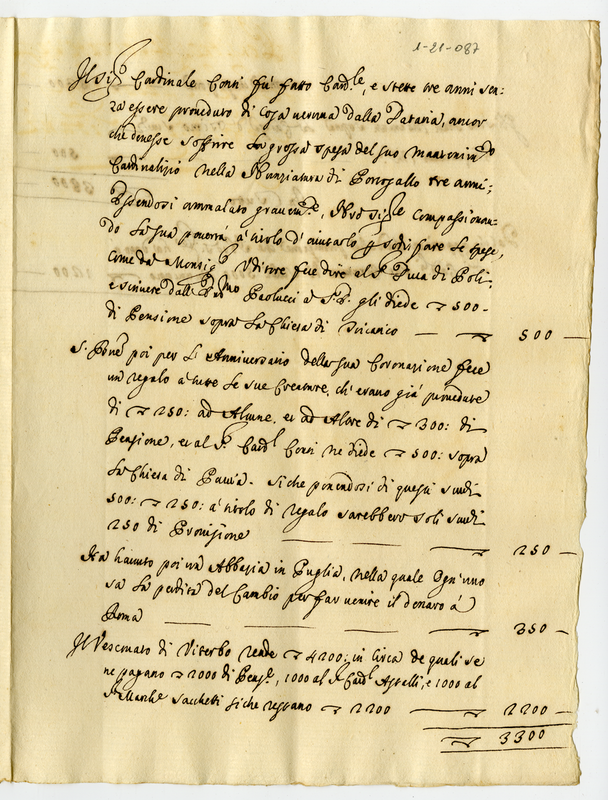 1-21-087
Il Sig.r Cardinale Conti fù fatto Card.le, e stette tre anni sen:
za essere proveduto di cosa veruna dalla Dataria, ancor
che dovesse soffrire la grossa spesa del suo mantenim.to
Cardinalizio nella Nunziatura di Portogallo tre anni;
Essendosi ammalato gravem.te, N.ro Sig.re compassionan:
do la sua povertà à titolo d'aiutarlo p sodisfare le spese,
come da Monsig.r Uditore fece dire al S.r Duca di Poli
e scrivere dall' Paolucci a S.E. gli diede 500-
di Pensione sopra la Chiesa di — 500 —
S. Pone poi per l'Anniversario della sua Coronazione fece
un regalo à tutte le sue Creature, ch'erano già provedute
di 250: ad Alcune, et ad Altre di 300: di
Pensione, et al S.r Card.l Conti ne diede 500: sopra
la Chiesa di Pavia. Siche ponendosi di questi scudi
500: 250: à titolo di regalo sarebbero soli scudi
250 di Provisione — 250 —
Ha havuto poi un' Abbazia in Puglia, nella quale Ogn'uno
sa la perdita del Cambio per far venire il denaro à
Roma — 350 —
Il Vescovato di Viterbo rende 4200: in circa de quali se
ne pagano 2000 di Pens.e, 1000 al S.r Card.l Astalli, e 1000 al
Sacchetti siche restano 2200 — 2200 —
3300